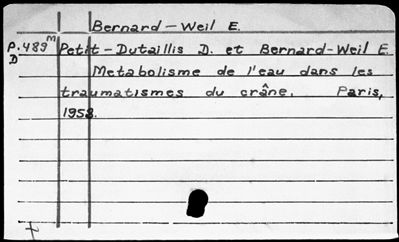 Bernard-Weil E.
P.489 m Petit-Dutaillis D. et Bernard-Weil E.
D Metabolisme de l'eau dans les
traumatismes du crâne. Paris,
1958.